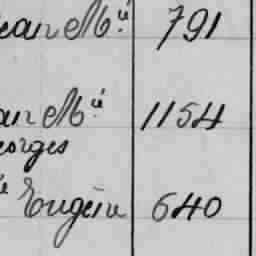 ean M.ie 791
an M.ie 1154
eorges
Eugène 640